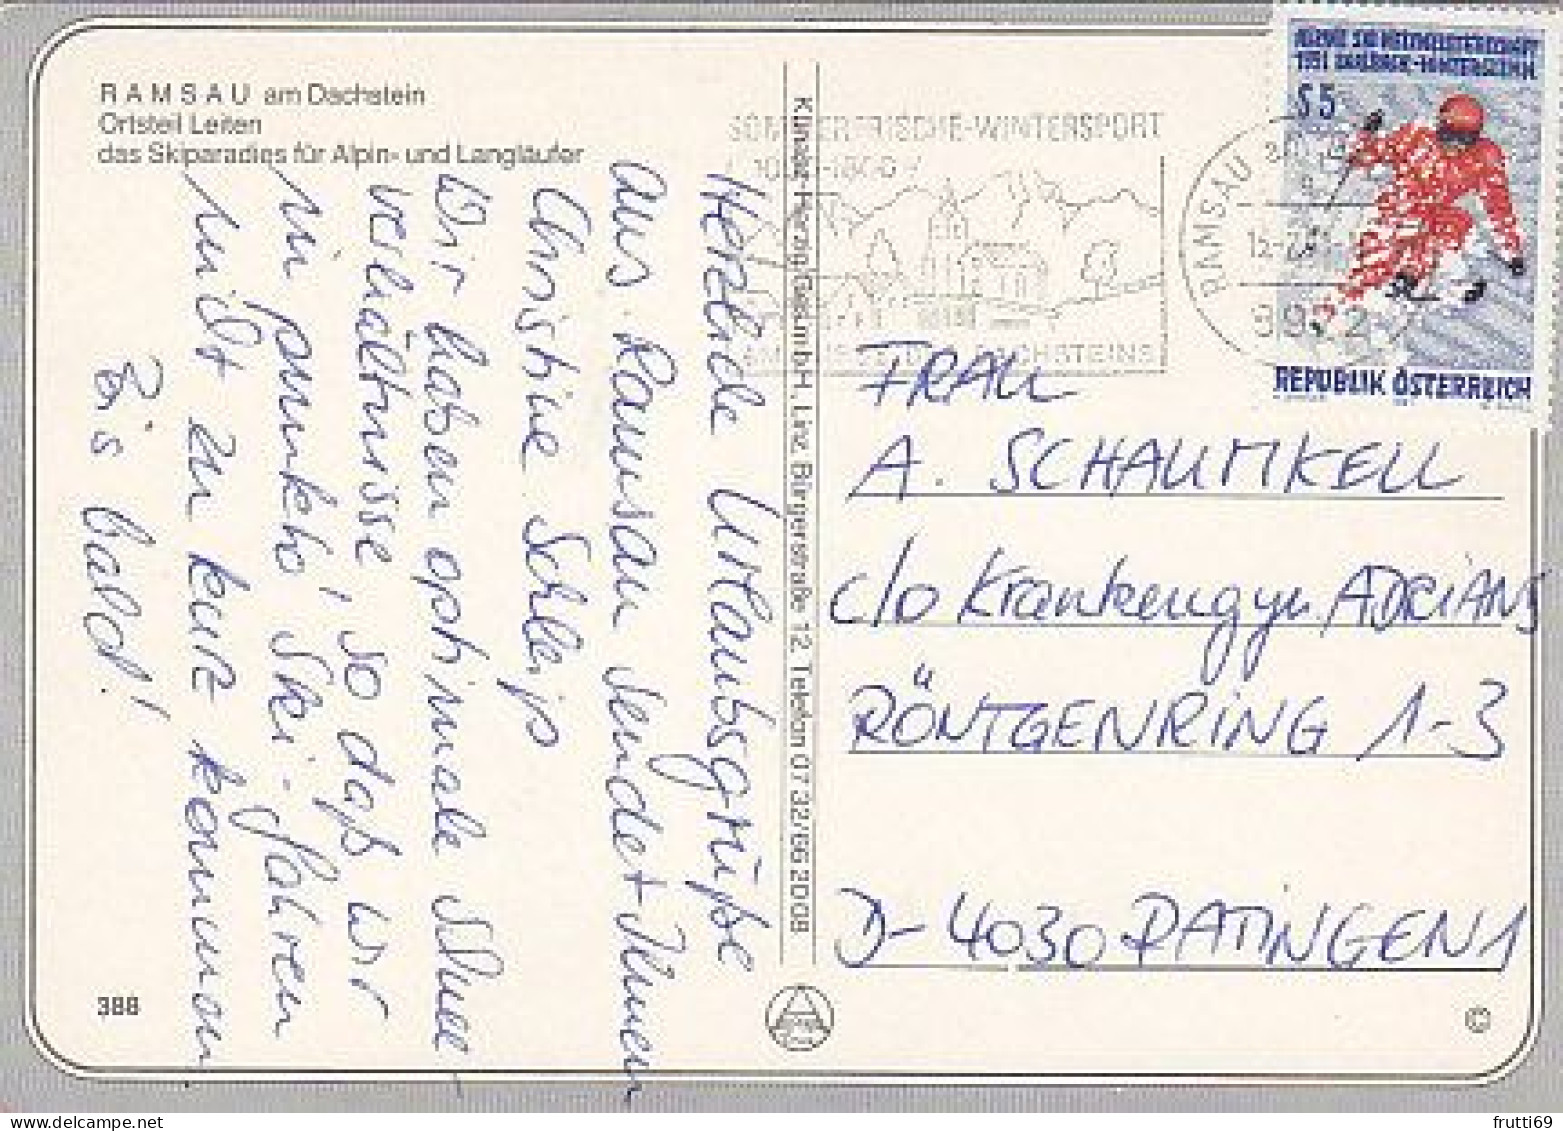 RAMSAU am Dachstein
Ortsteil Leiten
das Skiparadies für Alpin- und Langläufer
Herzliche Urlaubsgrüße
aus Ramsau sendet Ihnen
Christine Schleip
Wir haben optimale Schnee
verhältnisse, so daß wir
in punkto Ski-fahren
nicht zu kurz kommen
Bis bald!
388
Kunstd. Herzig Ges.m.b.H. Linz, Bürgerstraße 12, Telefon 0732/662008
SOMMERFRISCHE-WINTERSPORT
AM FUSSE DES DACHSTEINS
RAMSAU
JUGEND SKI WELTMEISTERSCHAFT
1991 SAALBACH-HINTERGLEMM
S5
REPUBLIK ÖSTERREICH
FRAU
A. SCHAUMKELL
c/o Krankengyn ADRIANS
RÖNTGENRING 1-3
D-4030 RATINGEN 1
©
frutti69